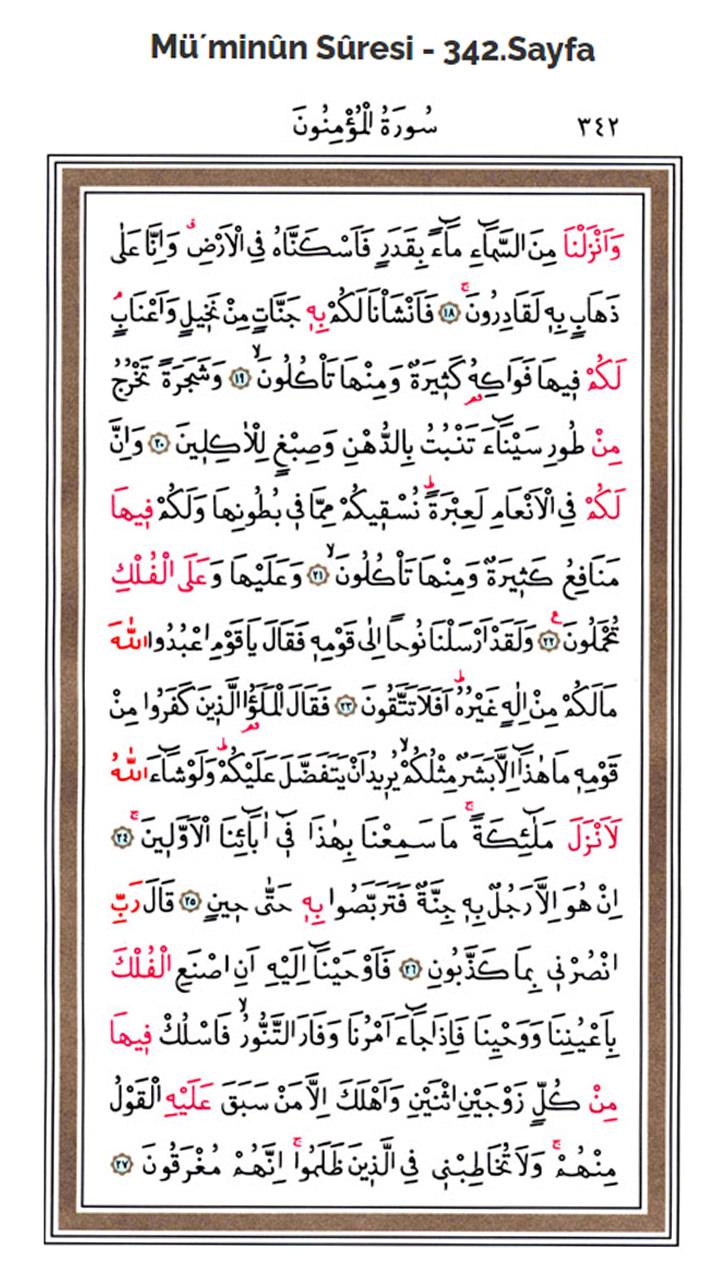 Mü´minûn Sûresi - 342.Sayfa
سُورَةُ الْمُؤْمِنُونَ ٣٤٢
وَاَنْزَلْنَا مِنَ السَّمَٓاءِ مَٓاءً بِقَدَرٍ فَاَسْكَنَّاهُ فِي الْاَرْضِۗ وَاِنَّا عَلٰى
ذَهَابٍ بِه۪ لَقَادِرُونَۚ ﴿١٨﴾ فَاَنْشَأْنَا لَكُمْ بِه۪ جَنَّاتٍ مِنْ نَخ۪يلٍ وَاَعْنَابٍۢ
لَكُمْ ف۪يهَا فَوَاكِهُ كَث۪يرَةٌ وَمِنْهَا تَأْكُلُونَۙ ﴿١٩﴾ وَشَجَرَةً تَخْرُجُ
مِنْ طُورِ سَيْنَٓاءَ تَنْبُتُ بِالدُّهْنِ وَصِبْغٍ لِلْاٰكِل۪ينَ ﴿٢٠﴾ وَاِنَّ
لَكُمْ فِي الْاَنْعَامِ لَعِبْرَةًۜ نُسْق۪يكُمْ مِمَّا ف۪ي بُطُونِهَا وَلَكُمْ ف۪يهَا
مَنَافِعُ كَث۪يرَةٌ وَمِنْهَا تَأْكُلُونَۙ ﴿٢١﴾ وَعَلَيْهَا وَعَلَى الْفُلْكِ
تُحْمَلُونَ۟ ﴿٢٢﴾ وَلَقَدْ اَرْسَلْنَا نُوحًا اِلٰى قَوْمِه۪ فَقَالَ يَا قَوْمِ اعْبُدُوا اللّٰهَ
مَا لَكُمْ مِنْ اِلٰهٍ غَيْرُهُۜ اَفَلَا تَتَّقُونَ ﴿٢٣﴾ فَقَالَ الْمَلَؤُا الَّذ۪ينَ كَفَرُوا مِنْ
قَوْمِه۪ مَا هٰذَٓا اِلَّا بَشَرٌ مِثْلُكُمْۙ يُر۪يدُ اَنْ يَتَفَضَّلَ عَلَيْكُمْۜ وَلَوْ شَٓاءَ اللّٰهُ
لَاَنْزَلَ مَلٰٓئِكَةًۚ مَا سَمِعْنَا بِهٰذَا ف۪ٓي اٰبَٓائِنَا الْاَوَّل۪ينَۚ ﴿٢٤﴾
اِنْ هُوَ اِلَّا رَجُلٌ بِه۪ جِنَّةٌ فَتَرَبَّصُوا بِه۪ حَتّٰى ح۪ينٍ ﴿٢٥﴾ قَالَ رَبِّ
انْصُرْن۪ي بِمَا كَذَّبُونِ ﴿٢٦﴾ فَاَوْحَيْنَٓا اِلَيْهِ اَنِ اصْنَعِ الْفُلْكَ
بِاَعْيُنِنَا وَوَحْيِنَا فَاِذَا جَٓاءَ اَمْرُنَا وَفَارَ التَّنُّورُۙ فَاسْلُكْ ف۪يهَا
مِنْ كُلٍّ زَوْجَيْنِ اثْنَيْنِ وَاَهْلَكَ اِلَّا مَنْ سَبَقَ عَلَيْهِ الْقَوْلُ
مِنْهُمْۚ وَلَا تُخَاطِبْن۪ي فِي الَّذ۪ينَ ظَلَمُواۚ اِنَّهُمْ مُغْرَقُونَ ﴿٢٧﴾